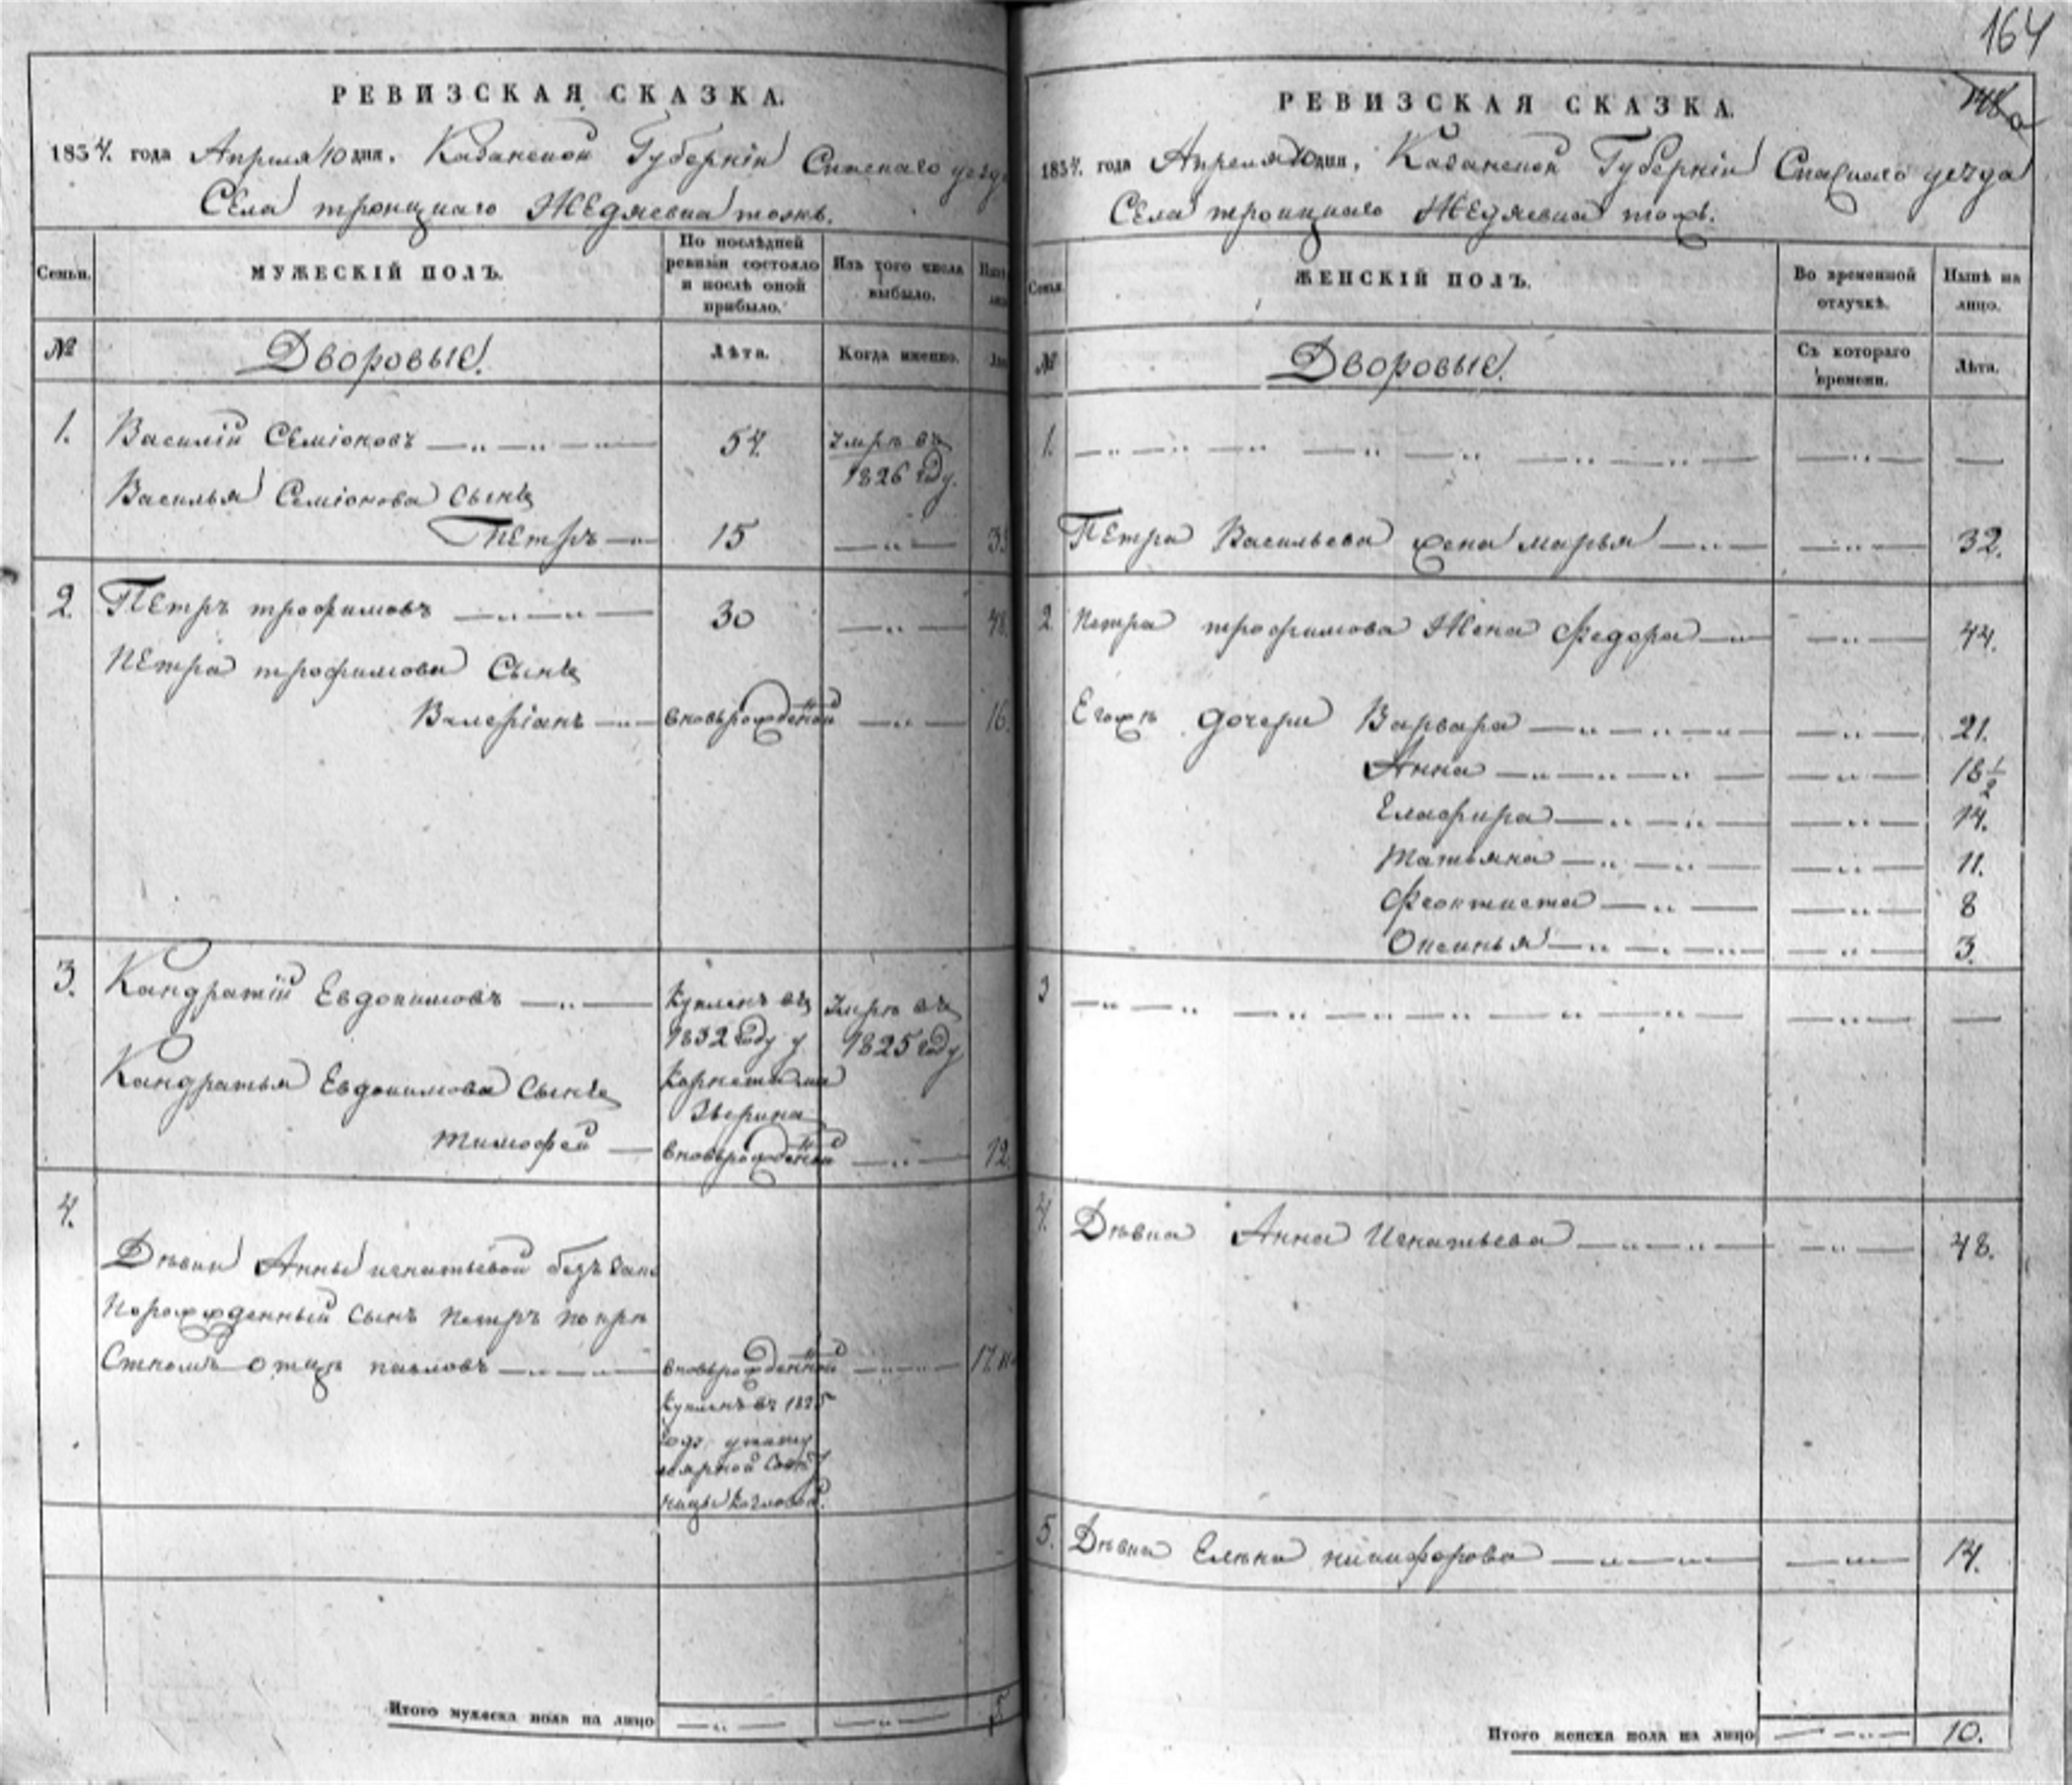 164
РЕВИЗСКАЯ СКАЗКА.
1834. года Апреля 10 дня. Казанской Губернiи Спаскаго уезда
Села троицкаго Жедяевка тожъ.
Семьи.
МУЖЕСКIЙ ПОЛЪ.
По послѣдней ревизiи состояло и послѣ оной прибыло.
Изъ того числа выбыло.
№
Дворовые.
Лѣта.
Когда именно.
1. Василiй Семiоновъ 54. Умре въ
1826 году.
Василья Семiонова Сынъ
Петръ 15
2. Петръ трофимовъ 30 48.
Петра трофимова Сынъ
Валерiанъ вновьрожденной 16.
3. Кандратiй Евдокимовъ Купленъ въ Умре въ
1832 году у 1825 году
Кандратья Евдокимова Сынъ Корнета
Зверина
тимофей вновьрожденной 12.
4.
Девки Анны игнатьевой безъ
Порожденный Сынъ Петръ по кре
Стномъ отце павловъ вновьрожденной 17
Купленъ въ 1825
годъ
Козловой.
Итого мужеска пола на лицо 5
РЕВИЗСКАЯ СКАЗКА.
1834. года Апреля 10 дня. Казанской Губернiи Спаскаго уезда
Села троицкаго Жедяевка тожъ.
Семьи.
ЖЕНСКIЙ ПОЛЪ.
Во временной отлучкѣ.
Нынѣ на лицо.
№
Дворовые.
Съ котораго времени.
Лѣта.
1.
Петра Васильева жена марья 32.
2 Петра трофимова Жена Федора 44.
Егожъ дочери Варвара 21.
Анна 18 1/2
Елафира 14.
Татьяна 11.
Феоктиста 8
Оксинья 3.
3
4. Девка Анна Игнатьева 48.
5. Девка Елена никифорова 14.
Итого женска пола на лицо 10.